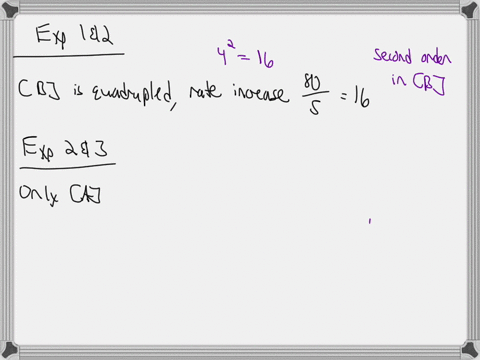 Exp 1&2
4² = 16
second order
in [B]
[B] is quadrupled, rate increase 80/5 = 16
Exp 2&3
Only [A]